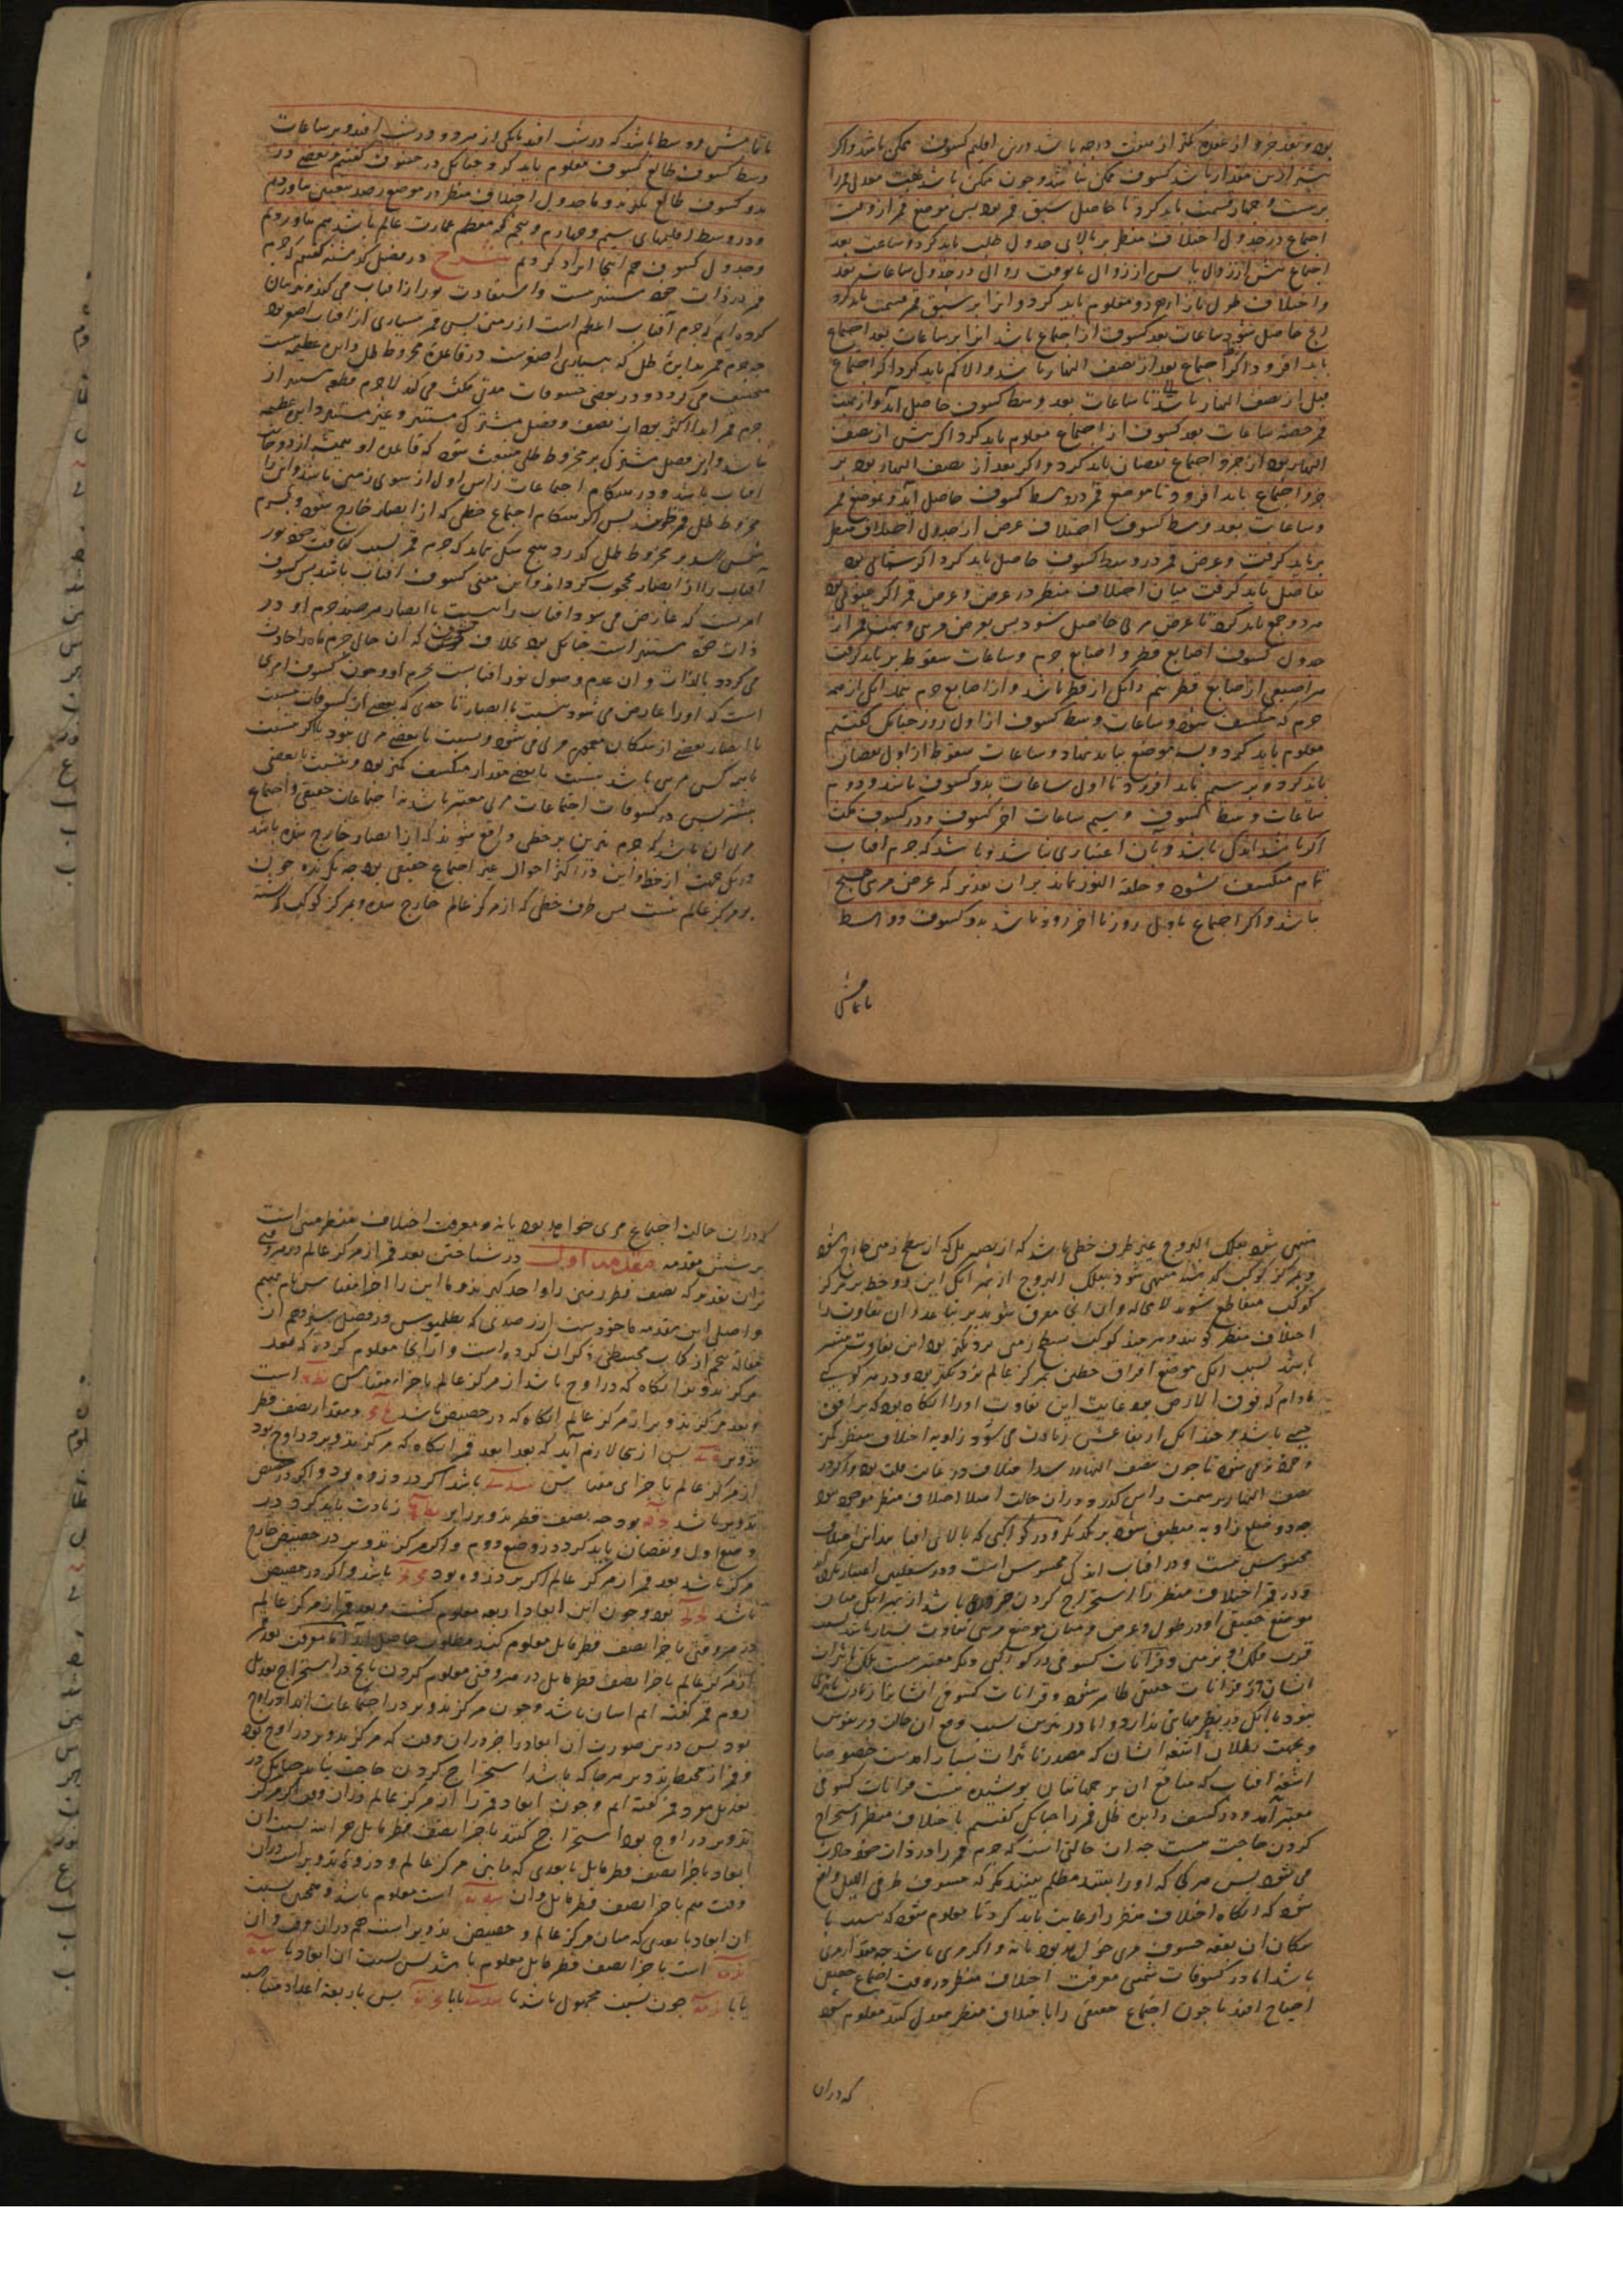 بود و بعد جزو از عقده کمتر از دوجه باشد درین اقلیم کسوف ممکن باشد و اگر
بیشتر ازین مقدار باشد کسوف ممکن نباشد و چون ممکن باشد بهت معدل قمر را
بر بیست و چهار قسمت باید کرد تا حاصل سبق قمر بود پس موضع قمر از وقت
اجتماع در جدول اختلاف منظر بر بالای جدول طلب باید کرد و ساعت بعد
اجتماع پیش از زوال یا پس از زوال تا بوقت زوال در جدول ساعات بعد
و اختلاف طول بازای هر دو معلوم باید کرد و انرا بر سبق قمر قسمت باید کرد
انچ حاصل شود ساعات بعد کسوف از اجتماع باشد انرا بر ساعات بعد اجتماع
باید افزود اگر اجتماع بعد از نصف النهار باشد و الا کم باید کرد اگر اجتماع
قبل از نصف النهار باشد تا ساعات بعد وسط کسوف حاصل آید و از بهت
قمر حصه ساعات بعد کسوف از اجتماع معلوم باید کرد اگر پیش از نصف
النهار بود از جزو اجتماع نقصان باید کرد و اگر بعد از نصف النهار بود بر
جزو اجتماع باید افزود تا موضع قمر در وسط کسوف حاصل آید و بموضع قمر
و ساعات بعد وسط کسوف اختلاف عرض از جدول اختلاف منظر
بر باید گرفت و عرض قمر در وسط کسوف حاصل باید کرد اگر شمالی بود
تفاضل باید گرفت میان اختلاف منظر در عرض و عرض قمر اگر جنوبی بود
هر دو جمع باید کرد تا عرض مرئی حاصل شود پس بعرض مرئی و بهت قمر از
جدول کسوف اصابع قطر و اصابع جرم و ساعات سقوط بر باید گرفت
هر اصبعی از اصابع قطر سهم دانگی از قطر باشد و از اصابع جرم نیم دانگی از همه
جرم که منکسف شود و ساعات وسط کسوف از اول روز چنانک گفتیم
معلوم باید کرد و بسه موضع بباید نهاد و ساعات سقوط از اول نقصان
باید کرد و بر سیم باید افزود تا اول ساعات بدو کسوف باشد و دوم
ساعات وسط کسوف و سیم ساعات اخر کسوف و در کسوف مکث
اگر باشد اندکی باشد و بآن اعتباری نباشد و باشد که جرم افتاب
تمام منکسف نشود و حلقة النور بماند بر ان تقدیر که عرض مرئی هیچ
باشد و اگر اجتماع باول روز تا اخر روز باشد بدو کسوف و وسط
تا تمامش
تا تمامش و وسط باشد که در شب افتد یا یکی از هر دو در شب افتد و بر ساعات
وسط کسوف طالع کسوف معلوم باید کرد و چنانکه در خسوف گفتیم و بعضی در
بدو کسوف طالع نگیرند و ما جدول اختلاف منظر در موضع رصد بتعیین بیاوردیم
و در وسط اقلیمهای سیم و چهارم و پنجم که معظم عمارت عالم باشد هم بیاوردیم
و جدول کسوف هم اینجا ایراد کردیم شرح در فصل گذشته گفتیم که جرم
قمر در ذات خود مستنیر نیست و استفادت نور از افتاب می کند و بیان
کرده ایم که جرم آفتاب اعظم است از زمین پس قمر بسیاری از افتاب اصغر بود
چه جرم قمر بدایرۀ ظل که بسیاری اصغرست در قاعدۀ مخروط ظل و این عظیمست
منخسف می گردد و در بعضی خسوفات مدتی مکث می کند لاجرم قطعۀ مستنیر از
جرم قمر ابدا اکثر بود از نصف و فصل مشترک مستنیر و غیر مستنیر دایره عظیمه
نباشد و این فصل مشترک بر مخروط ظلی منبعث شود که قاعدۀ او همیشه از دو جانب
افتاب باشد و در هنگام اجتماعات راس اول از سوی زمین باشد و انرا
مخروط ظل قمر گویند پس اگر هنگام اجتماع خطی که از ابصار خارج شود و بجرم
شمس رسد بر مخروط ظل گذرد هیچ شک نماند که جرم قمر بسبب کثافت خود نور
آفتاب را از ابصار محجوب گرداند و این معنی کسوف آفتاب باشد پس کسوف
امریست که عارض می شود افتاب را نسبت با ابصار هر چند جرم او در
ذات خود مستنیر است چنانکه بود بخلاف خسوف که آن حالی جرم ماه را حادث
می گردد بالذات و ان عدم وصول نور افتابست بجرم او و چون کسوف امری
است که اورا عارض می شود نسبت با ابصار تا حدی که بعضی از کسوفات نسبت
با ابصار بعضی از سکان معموره مرئی می شود و نسبت با بعضی مرئی نبود یا اگر نسبت
با همه کس مرئی باشد نسبت با بعضی مقدار منکسف کمتر بود و نسبت با بعضی
بیشتر پس در کسوفات اجتماعات مرئی معتبر باشد نه اجتماعات حقیقی و اجتماع
مرئی آن باشد که جرم نیرین بر خطی واقع شوند که از ابصار خارج شده باشد
در یک جهت از خط و این در اکثر احوال غیر اجتماع حقیقی بود چه نگرنده چون
بر مرکز عالم نیست پس طرف خطی که از مرکز عالم خارج شده و بمرکز کوکب گذشته
منتهی شود بفلک البروج غیر طرف خطی باشد که از بصر بل که از سطح زمین خارج شود
و بمرکز کوکب گذشته منتهی شود بفلک البروج از بهر انک این دو خط بر مرکز
کوکب متقاطع شوند لا محاله و از انجا متفرق شوند بر تباعد و ان تفاوت را
اختلاف منظر گویند و هر چند کوکب بسطح زمین نزدیکتر بود این تفاوت بیشتر
باشد بسبب انک موضع افتراق خطین بمرکز عالم نزدیکتر بود و در هر کوکبی
مادام که فوق الارض بود غایت این تفاوت اورا انگاه بود که بر افق
حسی باشد و چندانک ارتفاعش زیادت می شود زاویه اختلاف منظر کمتر
و خردتر می شود تا چون بنصف النهار رسد اختلاف در غایت قلت بود و اگر در
نصف النهار بر سمت راس گذرد در ان حالت اصلا اختلاف منظر موجود نبود
چه دو ضلع زاویه منطبق شوند بر یکدیگر و در کواکبی که بالای افتاب اند این اختلاف
محسوس نیست و در افتاب اندکی محسوس است و در سفلیین اعتبار نکنند
و در قمر اختلاف منظر را استخراج کردن ضروری باشد از بهر انک میان
موضع حقیقی او در طول و عرض و میان موضع مرئی تفاوت بسیار باشد بسبب
قرب فلک او بزمین و قرانات کسوفی در کواکب دیگر معتبر نیست بلک تاثیرات
ایشان در قرانات حقیقی ظاهر شود و قرانات کسوفی ایشانرا زیادت تاثیری
نبود با انک در نظر مباینتی ندارد و اما در نیرین بسبب وقع ان حالت در نفوس
و بجهت بطلان اشعه ایشان که مصدر تاثیرات بسیار اوست خصوصا
اشعه افتاب که منافع ان بر جهانیان پوشیده نیست قرانات کسوفی
معتبر آمد و در کسف دایره ظل قمر را چنانک گفتیم باختلاف منظر استخراج
کردن حاجت نیست چه ان حالتی است که جرم قمر را در ذات خود حادث
می شود پس هر کجا که اورا بینند مظلم بینند مگر که خسوف طرفی اللیل واقع
شود که انگاه اختلاف منظر را رعایت باید کرد تا معلوم شود که نسبت با
سکان ان بقعه خسوف مرئی خواهد بود یا نه و اگر مرئی باشد چه مقدار مرئی
باشد اما در کسوفات شمسی معرفت اختلاف منظر در وقت اجتماع حقیقی
احتیاج افتد تا چون اجتماع حقیقی را باختلاف منظر معدل کنند معلوم شود
که در ان
که در ان حالت اجتماع مرئی خواهد بود یا نه و معرفت اختلاف منظر مبنی است
بر شش مقدمه مقدمه اول در شناختن بعد قمر از مرکز عالم در هر وقتی
بران تقدیر که نصف قطر زمین را واحد گیرند و ما این را اجزا مقیاس نام نهیم
و اصل این مقدمه ماخوذست از رصدی که بطلمیوس در فصل سیزدهم از
مقالۀ پنجم از کتاب مجسطی ذکر ان کرده است و از انجا معلوم کرده که بعد
مرکز تدویر انگاه که در اوج باشد از مرکز عالم باجزاء مقیاس است
و بعد مرکز تدویر از مرکز عالم انگاه که در حضیض باشد و مقدار نصف قطر
تدویر پس از انجا لازم آید که بعد ابعد قمر انگاه که مرکز تدویر در اوج بود
از مرکز عالم باجزای مقیاس باشد اگر در ذروه بود و اگر در حضیض
تدویر باشد بود چه نصف قطر تدویر را بر زیادت باید کرد در
وضع اول و نقصان باید کرد در وضع دوم و اگر مرکز تدویر در حضیض خارج
مرکز باشد بعد قمر از مرکز عالم اگر بر ذروه بود باشد و اگر در حضیض
باشد بود و چون این ابعاد اربعه معلوم گشت و بعد قمر از مرکز عالم
در هر وقتی باجزا نصف قطر مایل معلوم کنند مطلوب حاصل آید اما معرفت بعد قمر
از مرکز عالم باجزا نصف قطر مایل در هر وقتی معلوم کردن بانچ در استخراج تعدیل
دوم قمر گفته ایم اسان باشد و چون مرکز تدویر در اجتماعات ابدا در اوج
بود پس درین صورت ان ابعاد را جز در ان وقت که مرکز تدویر در اوج بود
و قمر از محیط تدویر هر جا که باشد استخراج کردن حاجت نباشد چنانک در
تعدیل مفرد قمر گفته ایم و چون ابعاد قمر را از مرکز عالم در ان وقت که مرکز
تدویر در اوج بود استخراج کنند باجزا نصف قطر مایل هر اینه نسبت ان
ابعاد باجزا نصف قطر مایل با بعدی که مابین مرکز عالم و ذروۀ تدویر است در ان
وقت هم باجزا نصف قطر مایل و ان است معلوم باشد و همچنین نسبت
ان ابعاد با بعدی که میان مرکز عالم و حضیض تدویر است هم در ان وقت و ان
است باجزا نصف قطر مایل معلوم باشد پس نسبت ان ابعاد با
یا با چون نسبت مجهول باشد با یا با پس باربعه اعداد متناسبه